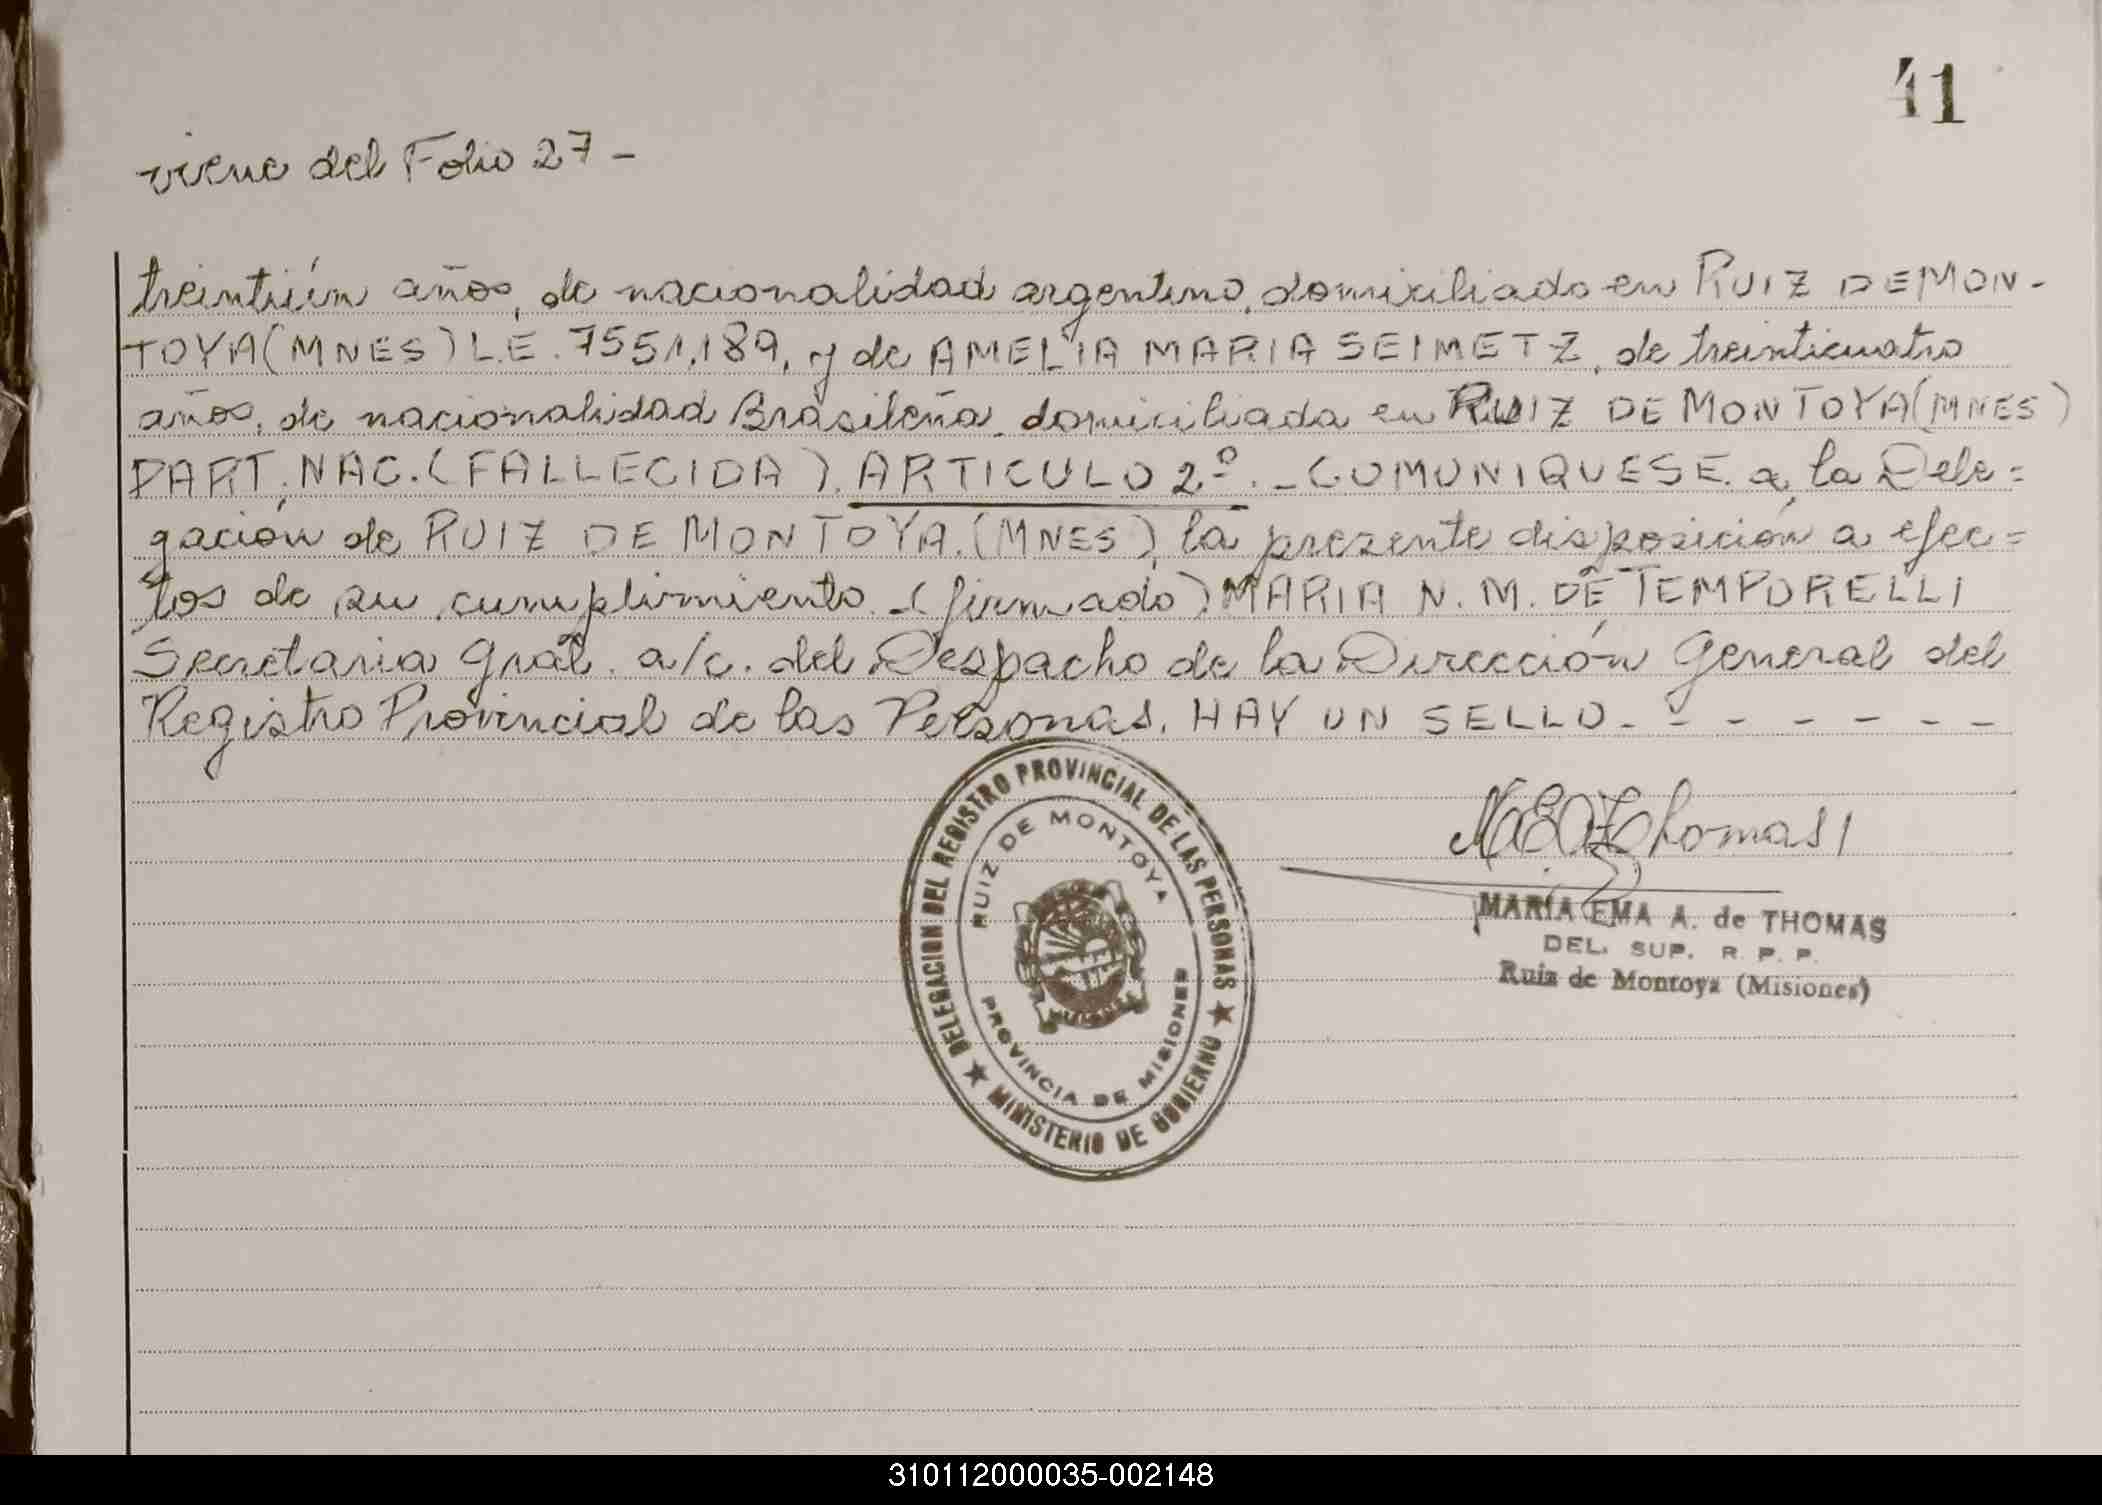 41
viene del Folio 27 -
treintiún años, de nacionalidad argentino, domiciliado en RUIZ DE MON-
TOYA (MNES) L.E. 7551,189, y de AMELIA MARIA SEIMETZ, de treinticuatro
años, de nacionalidad Brasileña, domiciliada en RUIZ DE MONTOYA (MNES)
PART. NAC. (FALLECIDA). ARTICULO 2º. - COMUNIQUESE a la Dele=
gación de RUIZ DE MONTOYA. (MNES), la prezente disposición a efec=
tos de su cumplimiento. - (firmado) MARIA N. M. DE TEMPORELLI
Secretaria Gral. a/c. del Despacho de la Dirección General del
Registro Provincial de las Personas. HAY UN SELLO - - - - - - -
DELEGACION DEL REGISTRO PROVINCIAL DE LAS PERSONAS ★ MINISTERIO DE GOBIERNO ★
RUIZ DE MONTOYA
PROVINCIA DE MISIONES
Thomas
MARIA EMA A. de THOMAS
DEL. SUP. R. P. P.
Ruiz de Montoya (Misiones)
310112000035-002148